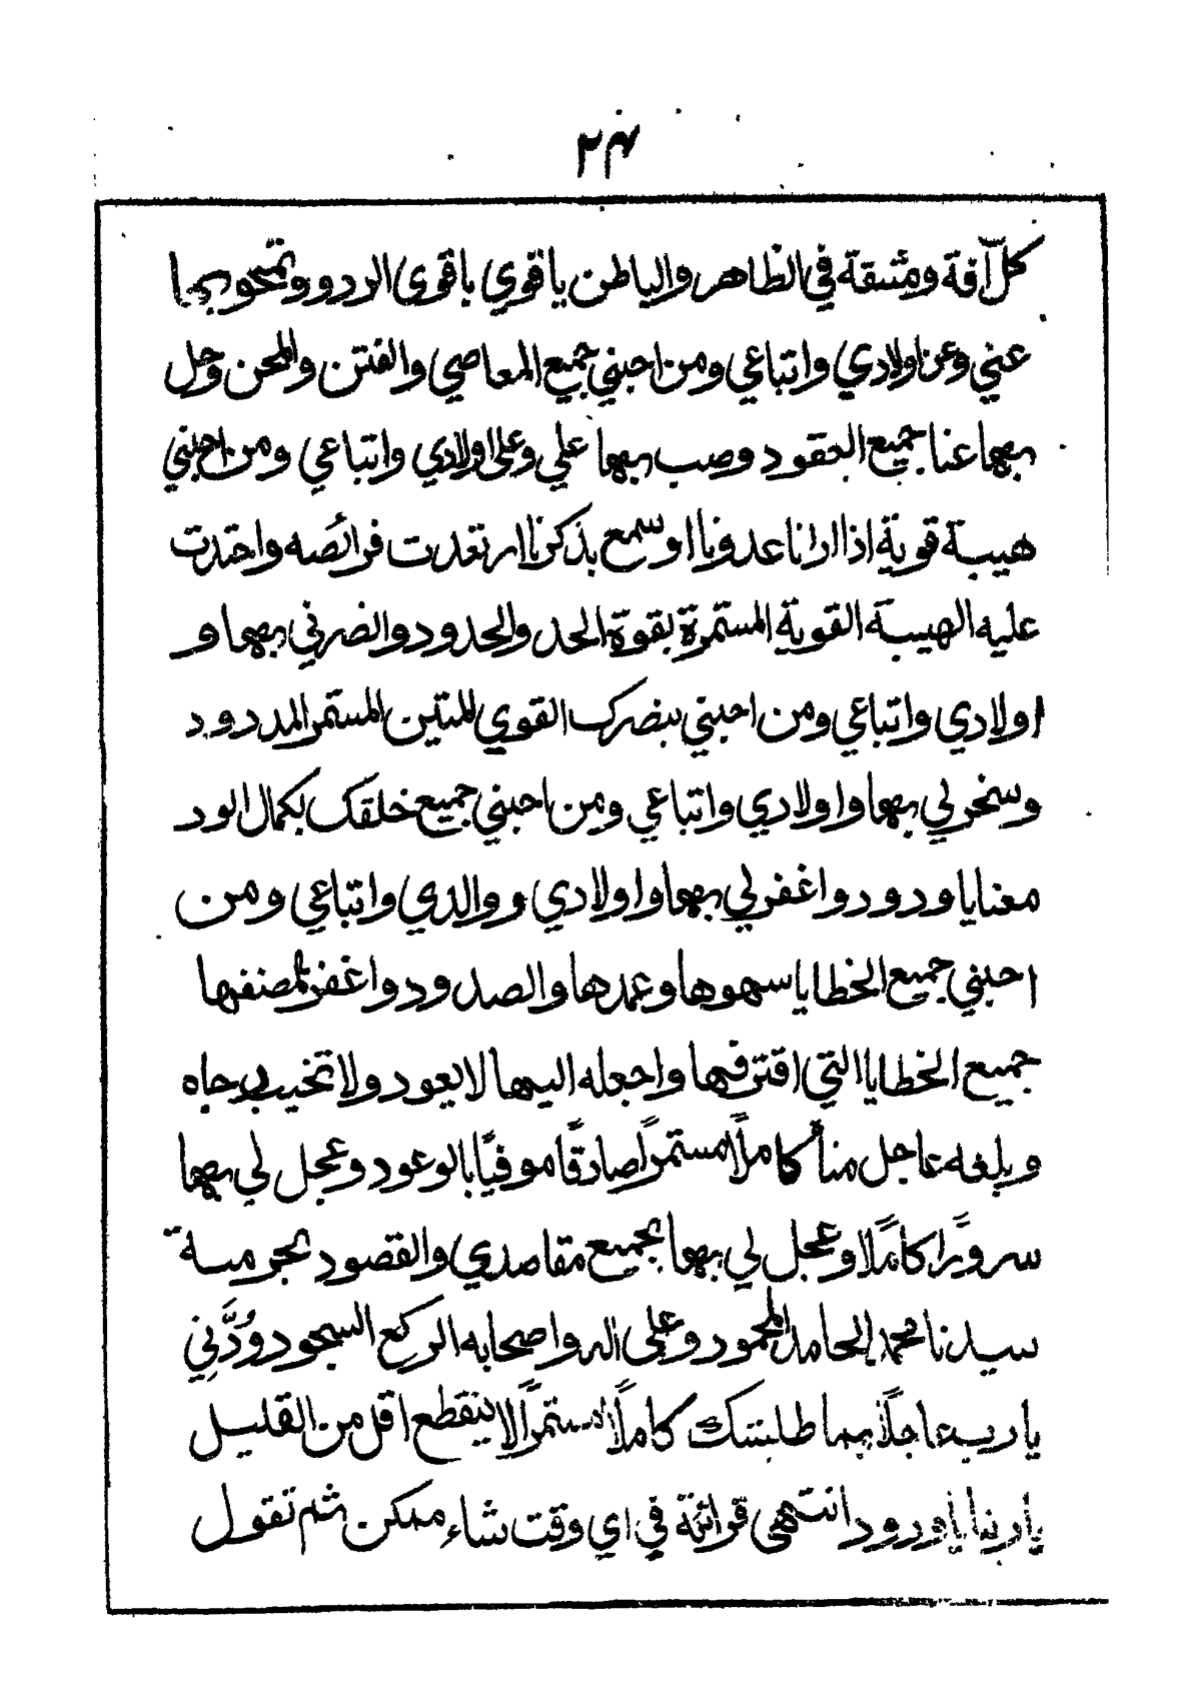 ٢٤
كل آفة ومشقة في الظاهر والباطن ياقوي ياقوي الردو وتمحو بها
عني وعن اولادي واتباعي ومن احبني جميع المعاصي والفتن والمحن وحل
بها عنا جميع العقود وصب بها علي وعلى اولادي واتباعي ومن احبني
هيبة قوية اذا ارانا عدونا اوسمع بذكرنا ارتعدت فرائصه واحتدت
عليه الهيبة القوية المستمرة بقوة الحد والحدود والضرني بها و
اولادي واتباعي ومن احبني بنصرك القوي المتين المستمر المدود
وسخرلي بها واولادي واتباعي ومن احبني جميع خلقك بكمال الود
معنايا ودود واغفرلي بها واولادي ووالدي واتباعي ومن
احبني جميع الخطايا سهوها وعمدها والصدود واغفر لمصنفها
جميع الخطايا التي اقترفها واجعله اليها لا يعود ولا تخيب رجاه
وبلغه عاجل مناً كاملاً مستمراً صادقًا موفيًا بالوعود وعجل لي بها
سرورًا كاملًا وعجل لي بها بجميع مقاصدي والقصود بحرمة
سيدنا محمد الحامد المحمود وعلى اله واصحابه الركع السجود وُدَّنِي
يارب عاجلاً بما طلبتك كاملاً مستمرًّا لا ينقطع اقل من القليل
ياربنا ياودود انتهى قرائة في اي وقت شاء ممكن ثم تقول